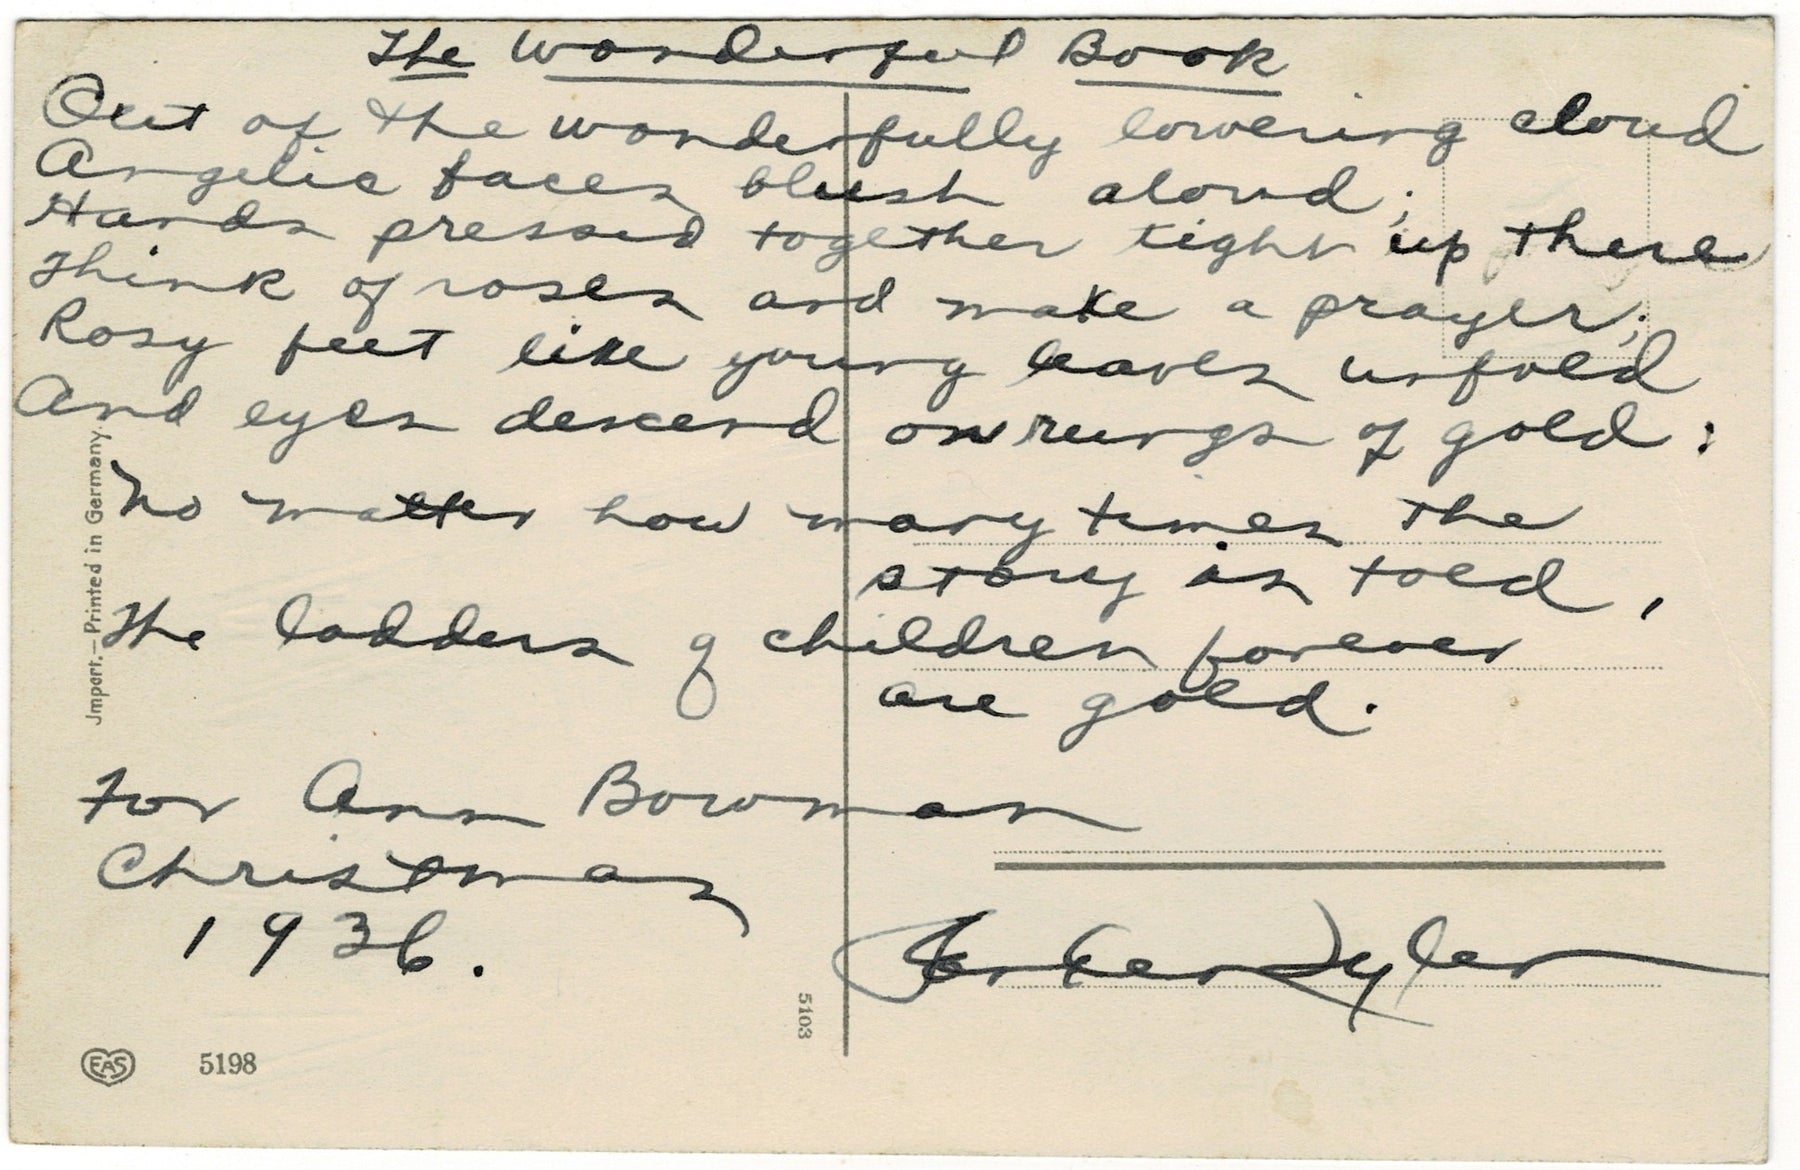 The Wonderful Book
Out of the wonderfully lowering cloud
Angelic faces blush aloud;
Hands pressed together tight up there
Think of roses and make a prayer;
Rosy feet like young leaves unfold
And eyes descend on rungs of gold:
No matter how many times the
story is told,
The ladders of children forever
are gold.
For Ann Bowman
Christmas
1936.
Parker Tyler
Jmport.—Printed in Germany.
5103
EAS 5198